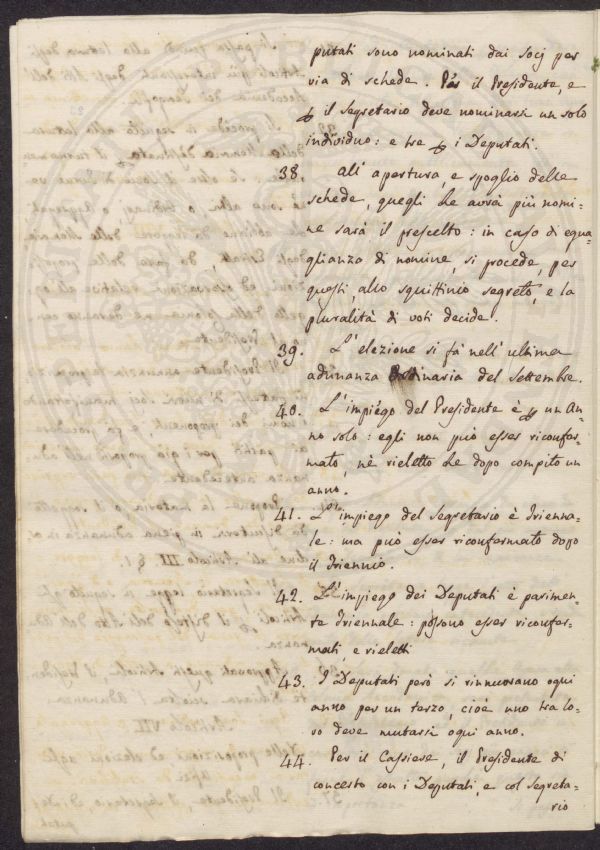 putati sono nominati dai socj per
via di schede. Per il Presidente, e
p il Segretario deve nominarsi un solo
individuo: e tre p i Deputati.
38. All' apertura, e spoglio delle
schede, quegli che avrà più nomi=
ne sarà il prescelto: in caso di egua=
glianza di nomine, si procede, per
questi, allo squittinio segreto, e la
pluralità di voti decide.
39. L' elezione si fà nell' ultima
adunanza Ordinaria del Settembre.
40. L' impiego del Presidente è p un An=
no solo: egli non può esser riconfer=
mato, nè rieletto che dopo compito un
anno.
41. L' impiego del Segretario è trienna=
le: ma può esser riconfermato dopo
il triennio.
42. L' impiego dei Deputati è parimen=
te triennale: possono esser riconfer=
mati, e rieletti
43. I Deputati però si rinnuovano ogni
anno per un terzo, cioè uno tra lo=
ro deve mutarsi ogni anno.
44. Per il Cassiere, il Presidente di
concerto con i Deputati, e col Segreta=
rio